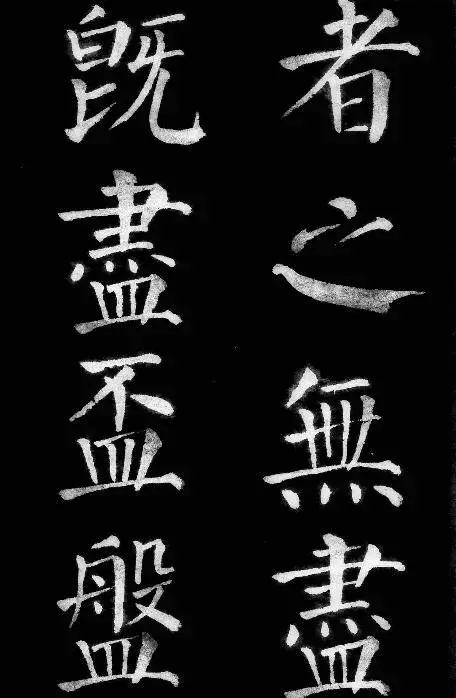 者之無盡
旣盡盃盤